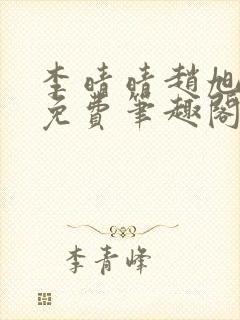 李晴晴趙旭
免費筆趣閣
李青峰